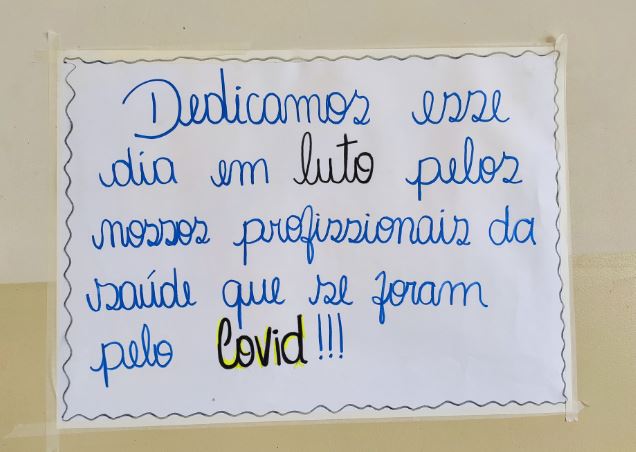 Dedicamos esse
dia em luto pelos
nossos profissionais da
saúde que se foram
pelo Covid!!!